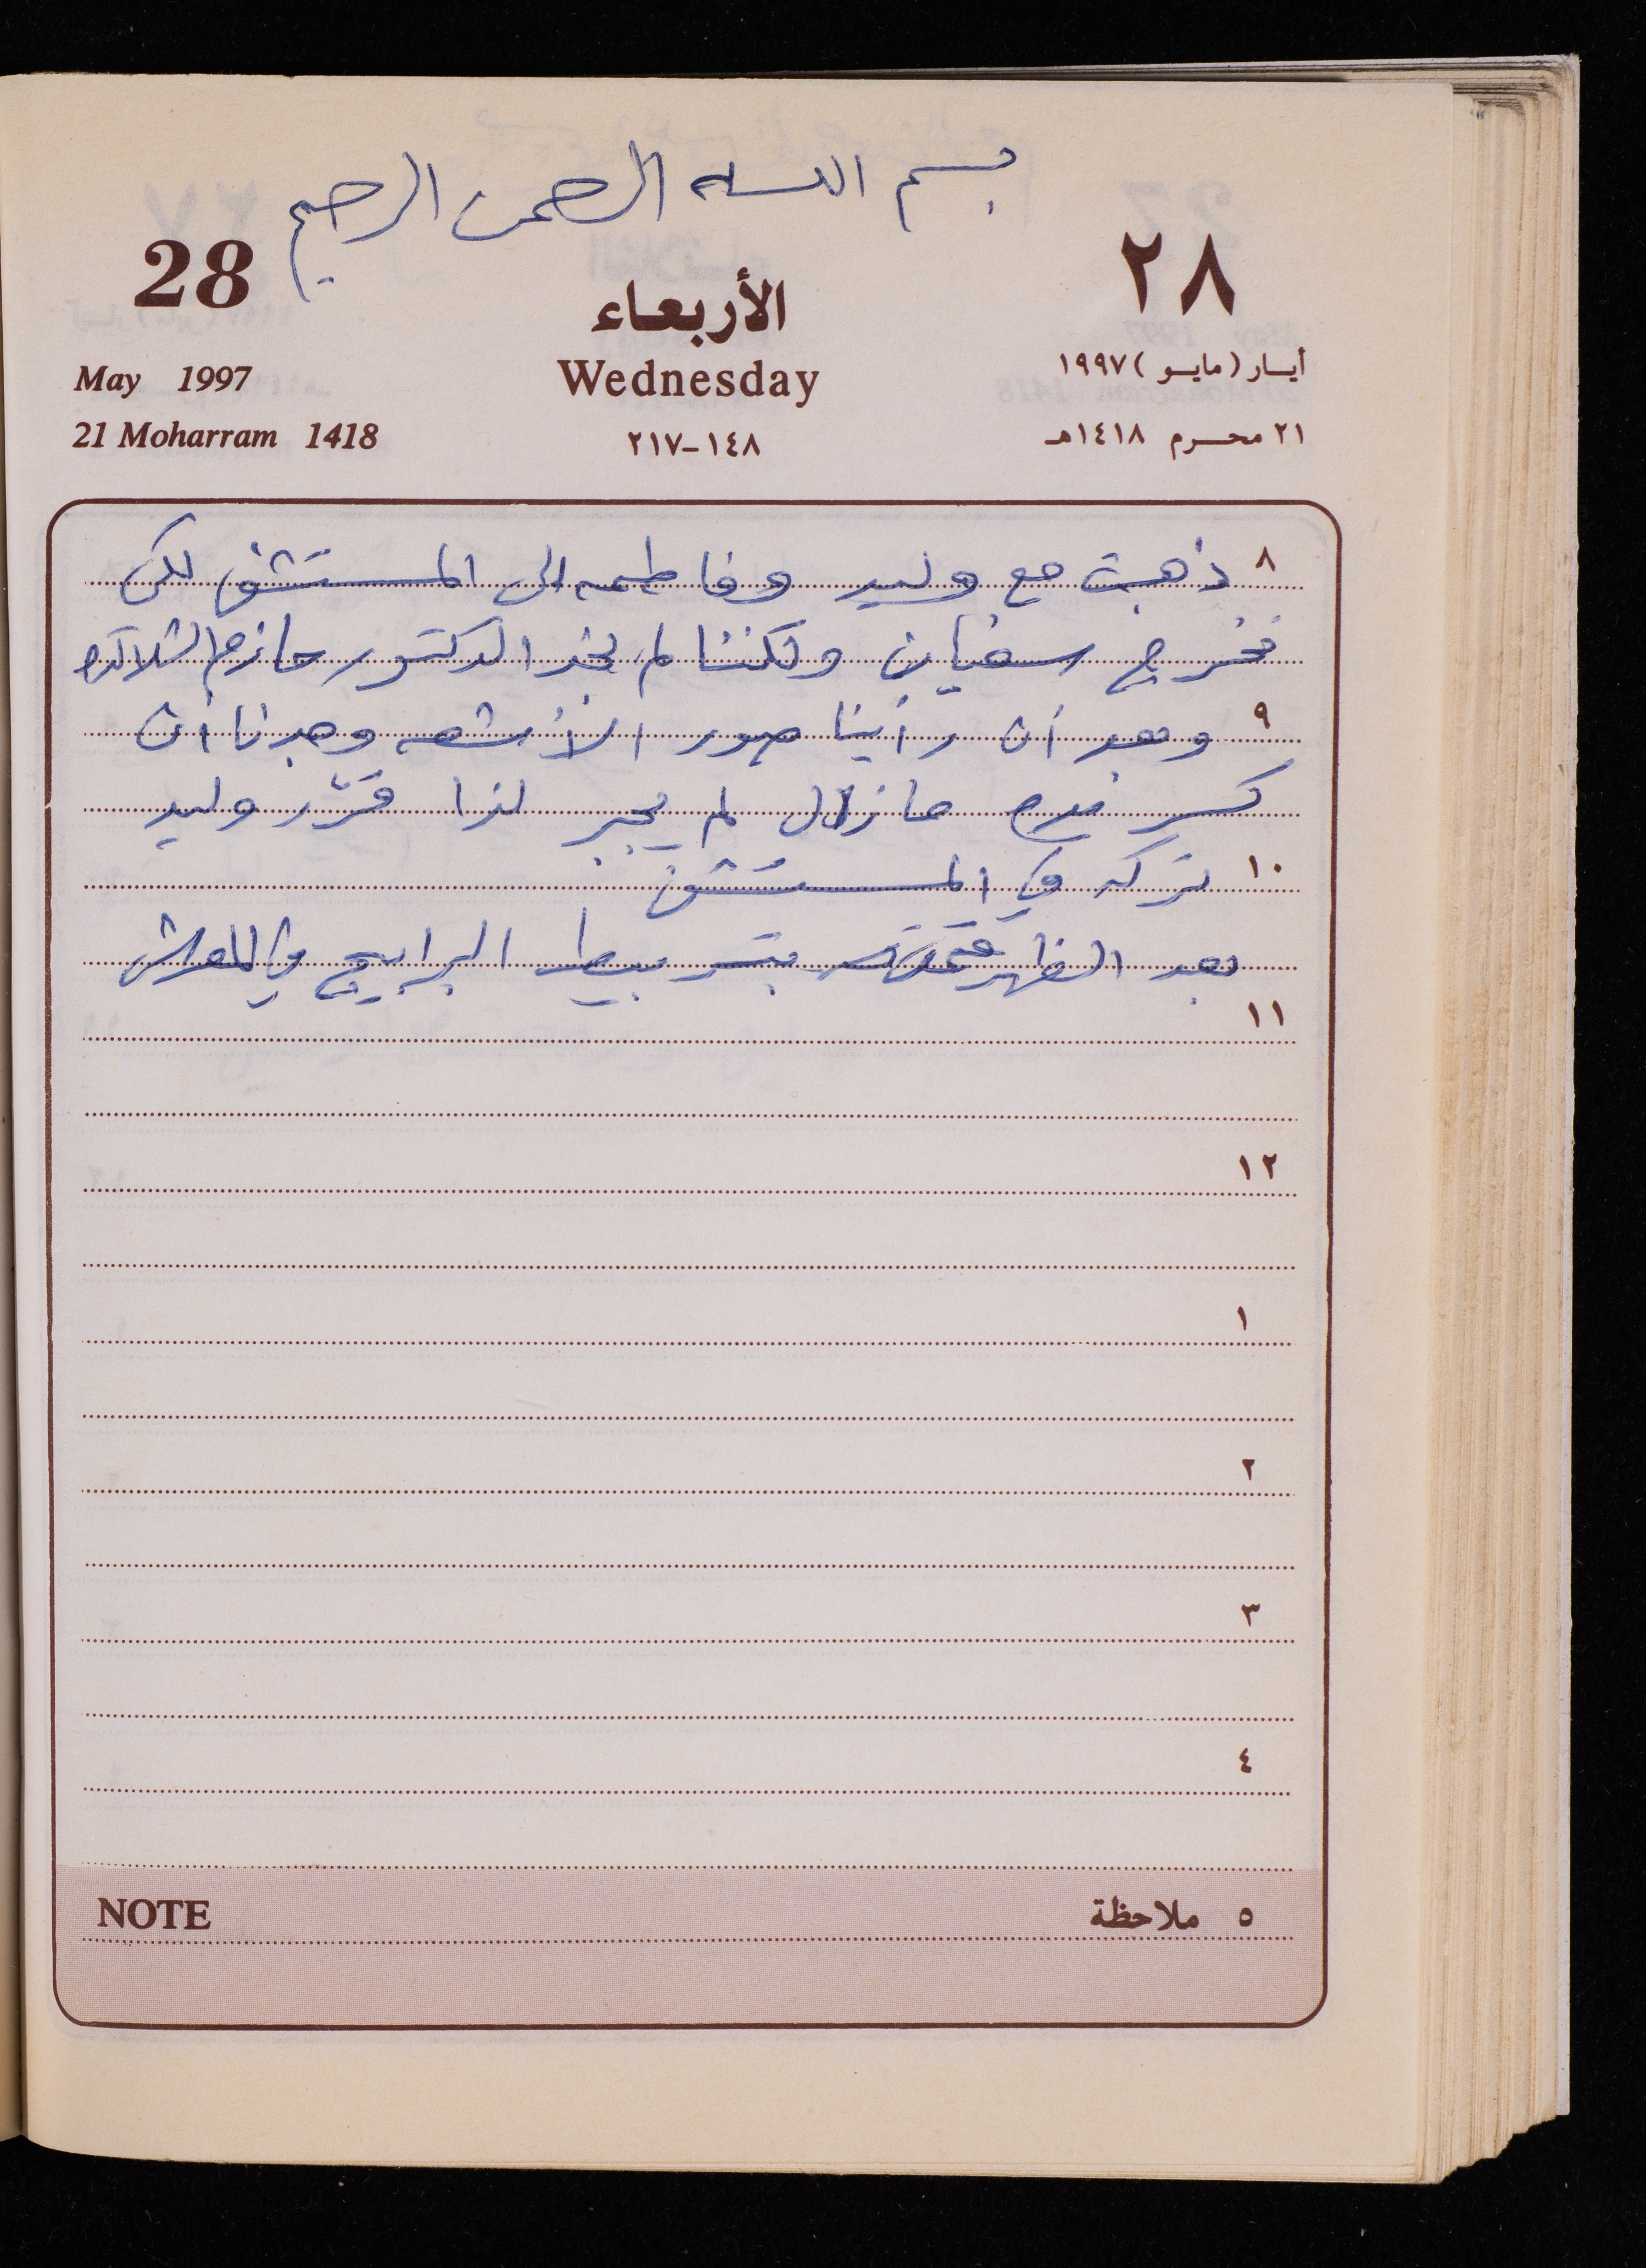 بسم اللـه الرحمن الرحيم
28
٢٨
الأربعاء
Wednesday
May 1997
أيـار (مايـو) ١٩٩٧
21 Moharram 1418
١٤٨-٢١٧
٢١ محـرم ١٤١٨هـ
٨ ذهبت مع وليد وفاطمه الى المستشفى لكي
نخرج سفيان ولكننا لم نجد الدكتور حازم
٩ وبعد أن رأينا صور الأشعه وجدنا أن
كسر مازال لم يجبر لذا قرّر وليد
١٠ تركه في المستشفى
بعد الظهر قمت البرابيج في
١١
١٢
١
٢
٣
٤
NOTE
٥ ملاحظة